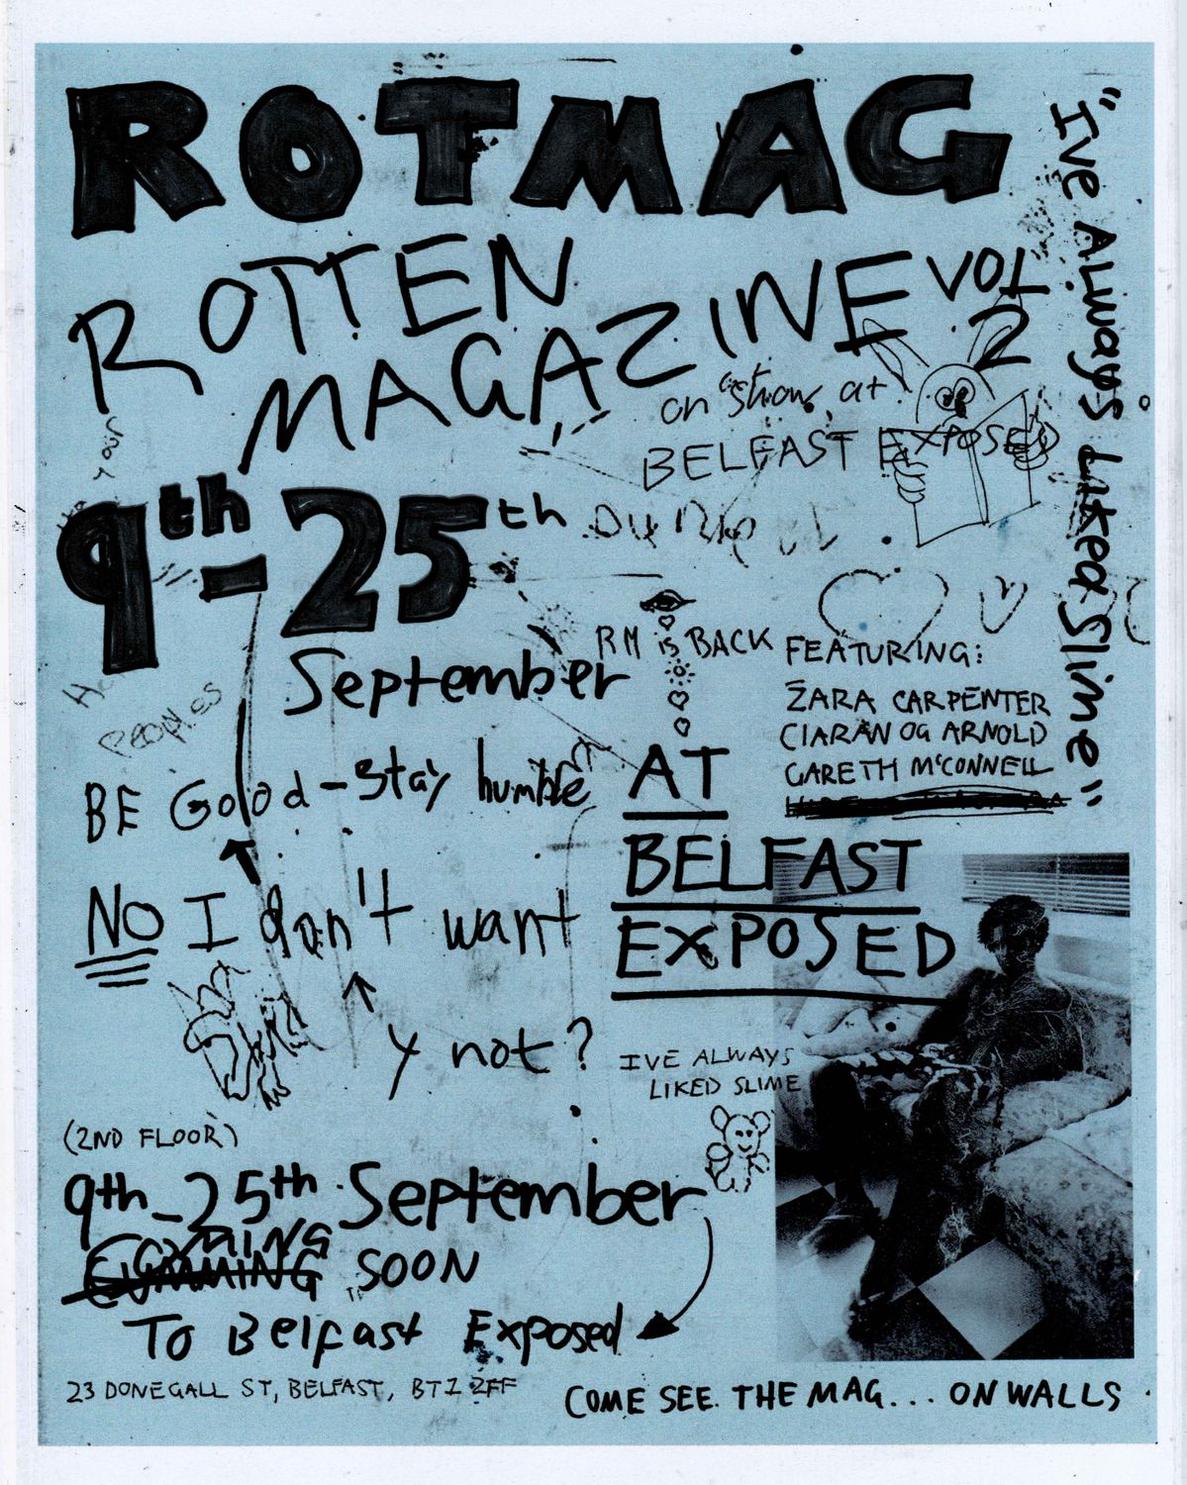 ROTMAG
ROTTEN
MAGAZINE VOL
2
on "show" at
BELFAST EXPOSED
"I'VE ALWAYS LIKED Slime"
9th-25th
September
RM is BACK
FEATURING:
ZARA CARPENTER
CIARÁN OG ARNOLD
GARETH McCONNELL
PEOPLES
BE Good - stay humble
AT
BELFAST
EXPOSED
NO I don't want
y not?
IVE ALWAYS
LIKED SLIME
(2ND FLOOR)
9th-25th September
COMING
CUMMING SOON
To Belfast Exposed
23 DONEGALL ST, BELFAST, BT1 2FF
COME SEE THE MAG... ON WALLS